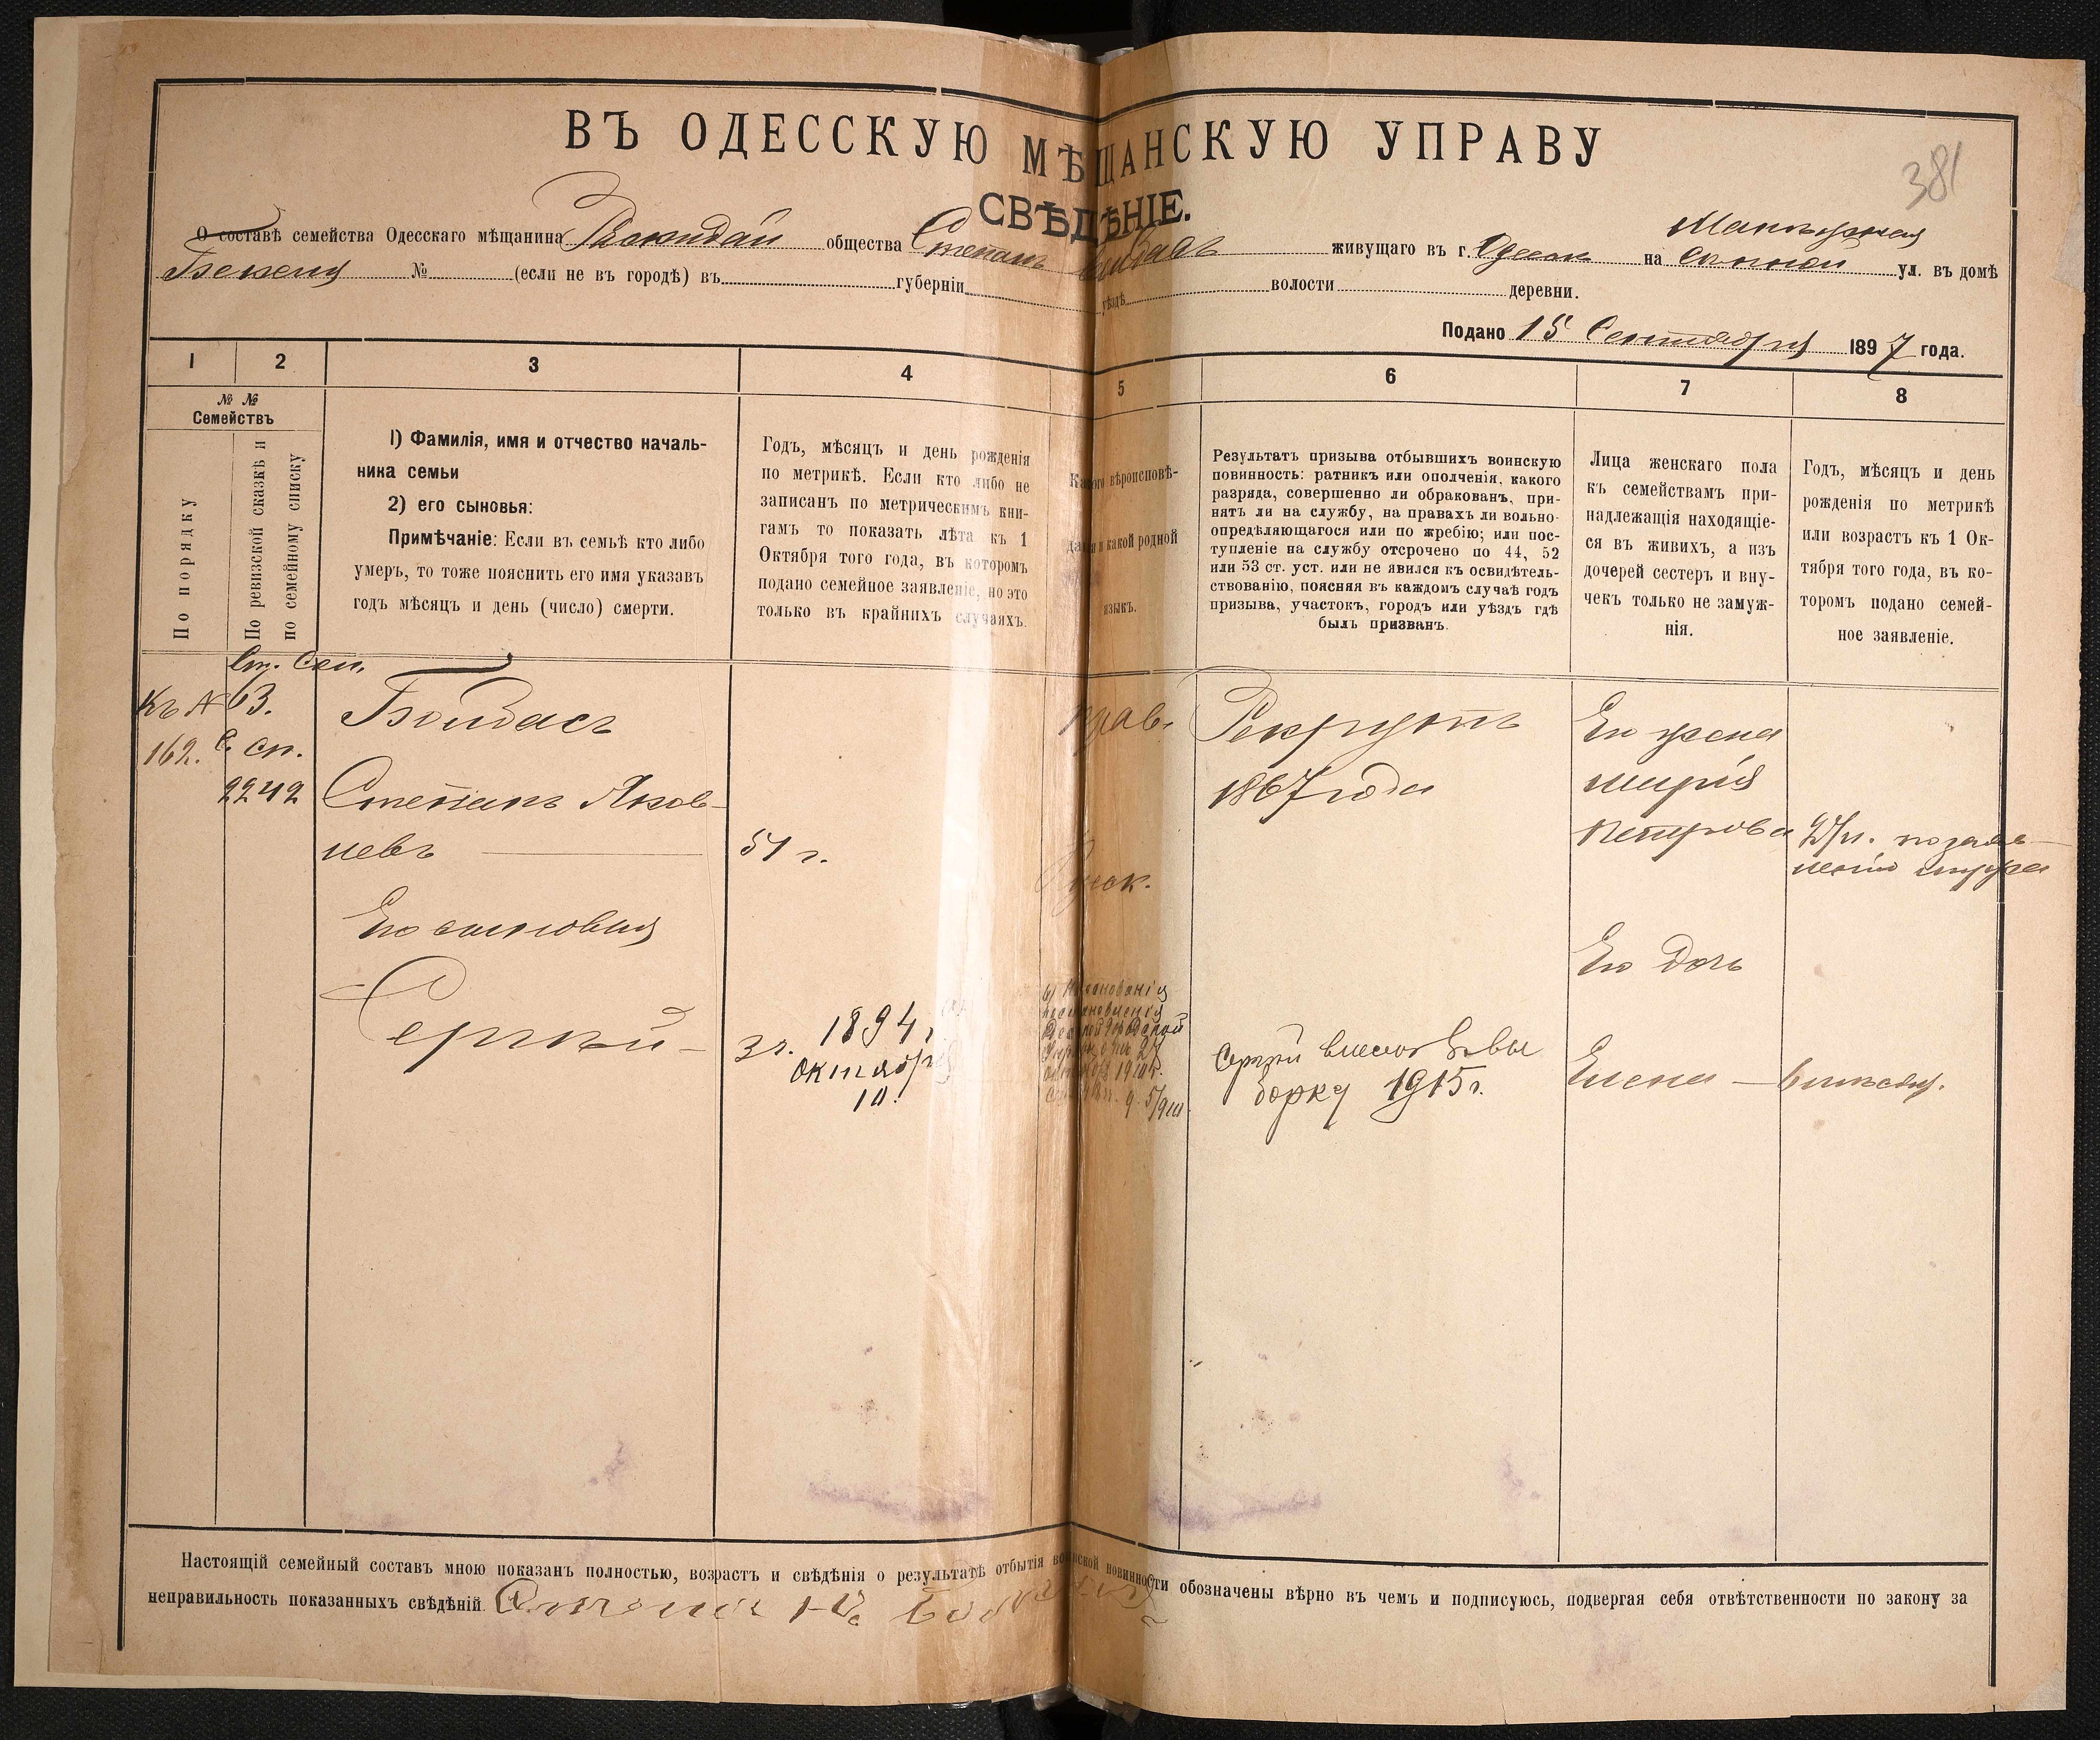 381
ВЪ ОДЕССКУЮ МѢЩАНСКУЮ УПРАВУ
СВѢДѢНІЕ.
О составѣ семейства Одесскаго мѣщанина общества Степанъ живущаго въ г. Одессѣ на ул. въ домѣ
№ (если не въ городѣ) въ губерніи уѣздѣ волости деревни.
Подано 15 Сентября 1897 года.
1 2 3 4 5 6 7 8
№ №
Семействъ
По порядку
По ревизской сказкѣ и
по семейному списку
1) Фамилія, имя и отчество началь-
ника семьи
2) его сыновья:
Примѣчаніе: Если въ семьѣ кто либо
умеръ, то тоже пояснить его имя указавъ
годъ мѣсяцъ и день (число) смерти.
Годъ, мѣсяцъ и день рожденія
по метрикѣ. Если кто либо не
записанъ по метрическимъ кни-
гамъ то показать лѣта къ 1
Октября того года, въ которомъ
подано семейное заявленіе, но это
только въ крайнихъ случаяхъ.
Какого вѣроисповѣ-
данія и какой родной
языкъ.
Результатъ призыва отбывшихъ воинскую
повинность: ратникъ или ополченія, какого
разряда, совершенно ли обракованъ, при-
нятъ ли на службу, на правахъ ли вольно-
опредѣляющагося или по жребію; или пос-
тупленіе на службу отсрочено по 44, 52
или 53 ст. уст. или не явился къ освидѣтель-
ствованію, поясняя въ каждомъ случаѣ годъ
призыва, участокъ, городъ или уѣздъ гдѣ
былъ призванъ.
Лица женскаго пола
къ семействамъ при-
надлежащія находящіе-
ся въ живихъ, а изъ
дочерей сестеръ и вну-
чекъ только не замуж-
нія.
Годъ, мѣсяцъ и день
рожденія по метрикѣ
или возрастъ къ 1 Ок-
тября того года, въ ко-
торомъ подано семей-
ное заявленіе.
Къ № 63.
162. сп.
2242
Степанъ Яков-
левъ 51 г.
Его сыновья
Сергѣй 3 г. 1894 г.
октября
10.
прав.
Русск.
Рекрутъ
1867 года
Сергѣй внесенъ въ вы
борку 1915 г.
Его жена
Марія
Петрова
Его дочь
Елена
Настоящій семейный составъ мною показанъ полностью, возрастъ и свѣдѣнія о результатѣ отбытія воинской повинности обозначены вѣрно въ чемъ и подписуюсь, подвергая себя отвѣтственности по закону за
неправильность показанныхъ свѣдѣній.